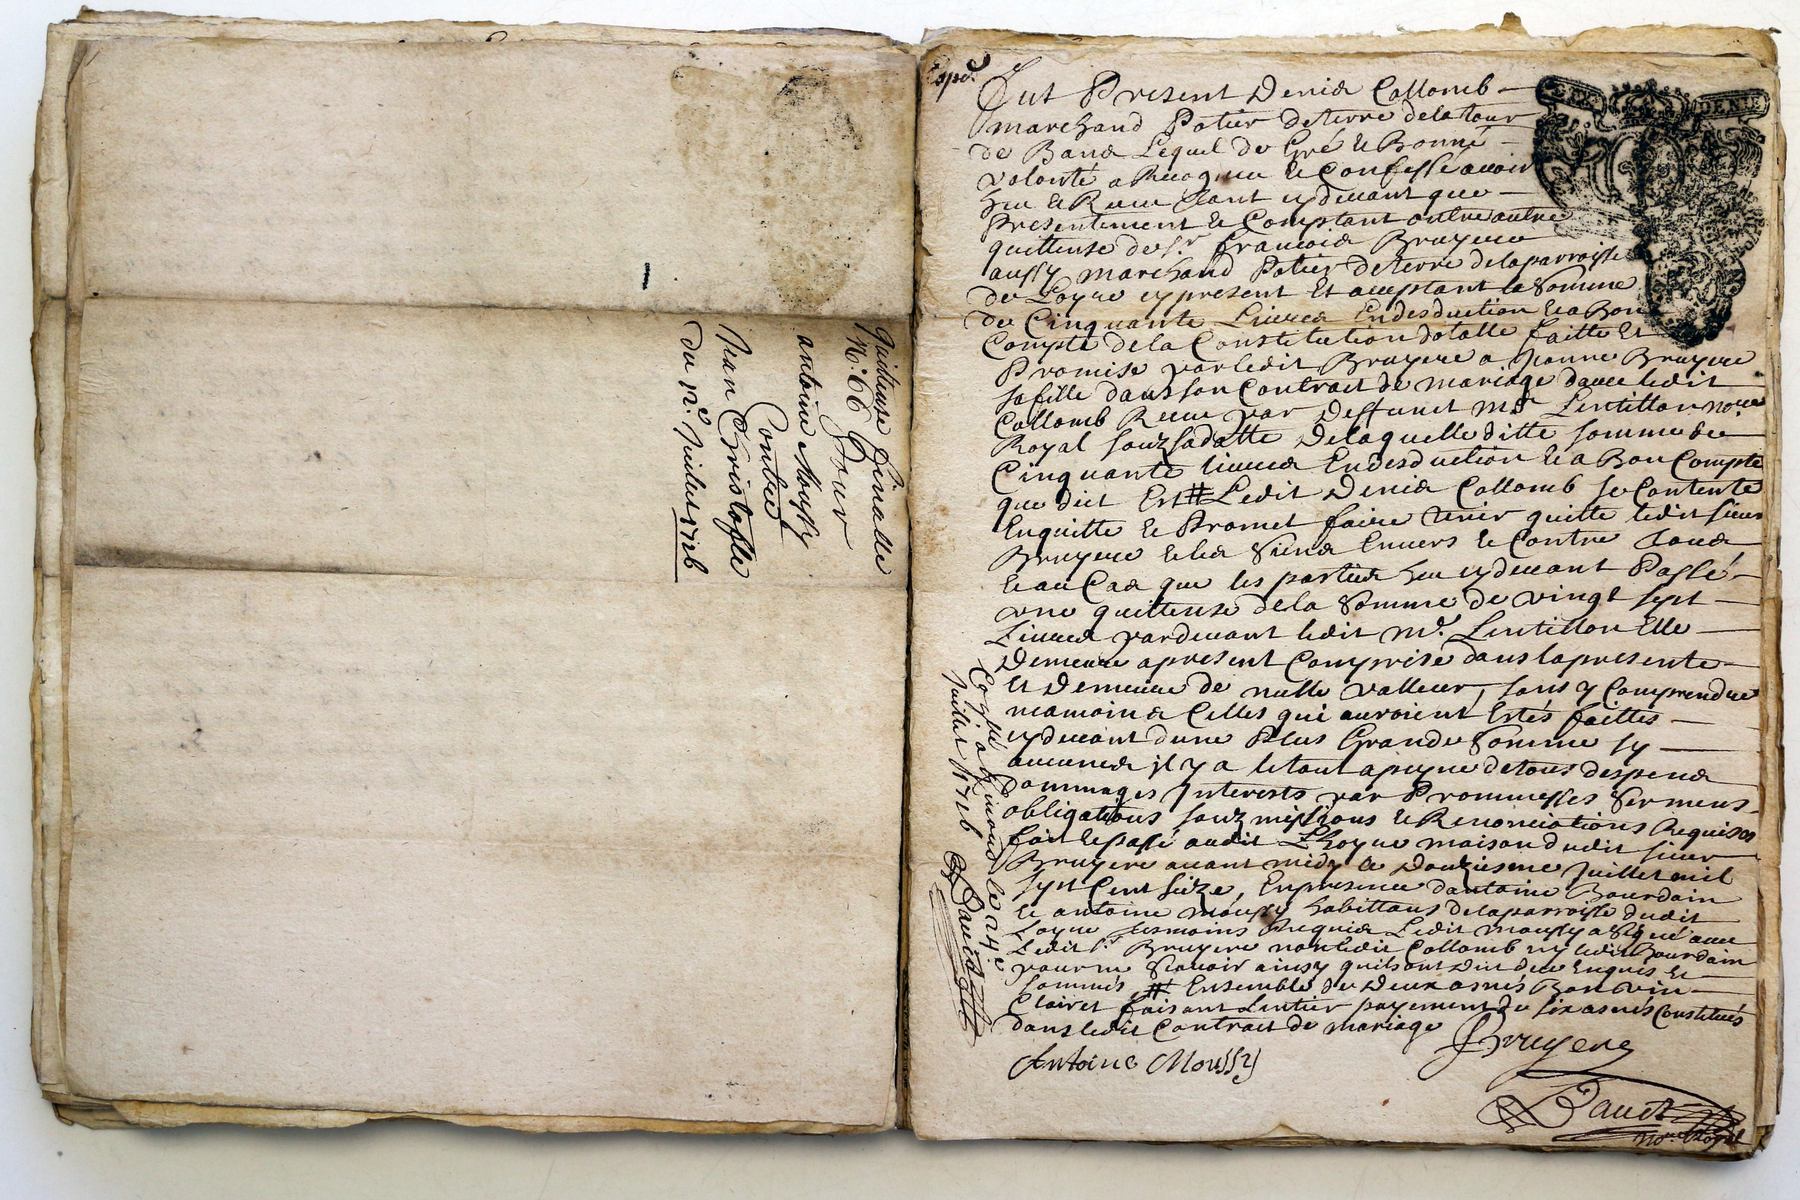 Quittense finalle
N.º 66 Pour
antoine Moussy
Contre
Jean Cristofle
du 12.e Juillet 1716
Expé.
DENIE
Fut Present Denis Collomb
marchand Potier de terre de la tour
de Bans Lequel de Gré et Bonne
volonté a Recognu et Confessé avoir
heu et Receu tant cy devant que
Presentement et Comptant outre autre
quittense de Sr. francois Bruyere
aussy marchand Potier de terre de la parroisse
de Loyre cy present Et acceptant la Somme
de Cinquante Livres En desduction et a Bon
Compte de la Constitution dotalle faitte Et
Promise par ledit Bruyere a Jeanne Bruyere
sa fille dans son Contrait de mariage d'avec ledit
Collomb Receu par deffunct me. Lentillon nore.
Royal souz sa datte De laquelle ditte somme de
Cinquante livres En desduction et a Bon Compte
que dict Est # Ledit Denis Collomb se Contente
Enquitte et Promet faire tenir quitte ledit sieur
Bruyere et les Siens Envers et Contre Tous
et au Cas que les parties heu cy devant Passé
une quittense de la Somme de vingt sept
Livres par devant ledit me. Lentillon Elle
Demeure a present Comprise dans la presente
Et Demeure de nulle valleur, sans y Comprendre
neamoins Celles qui auroient Estés faittes
cy devant d'une Plus Grande Somme sy
aucunes il y a le tout a peyne de tous despens
dommages Interests par Prommesses Sermens
obligations souzmissions et Renonciations Requises
fait et passé audit Lhoyre maison dudit sieur
Bruyere avant midy le Douzieme Juillet mil
sept Cent Seize, En presence d'antoine Bourdain
et antoine moussy habittans de la parroisse dudit
Loyre tesmoins Requis Ledit moussy a signé avec
Ledit sr. Bruyere non ledit Collomb ny ledit Bourdain
pour ne Scavoir ainsy quils ont Dit de ce Enquis Et
sommés # Ensemble de Deux asnés Bon vin
Clairet faisant Lentier payement de six asnés Constitués
dans ledit Contrait de mariage
Bruyere
Antoine Moussy
nore. Royal
juillet 1716